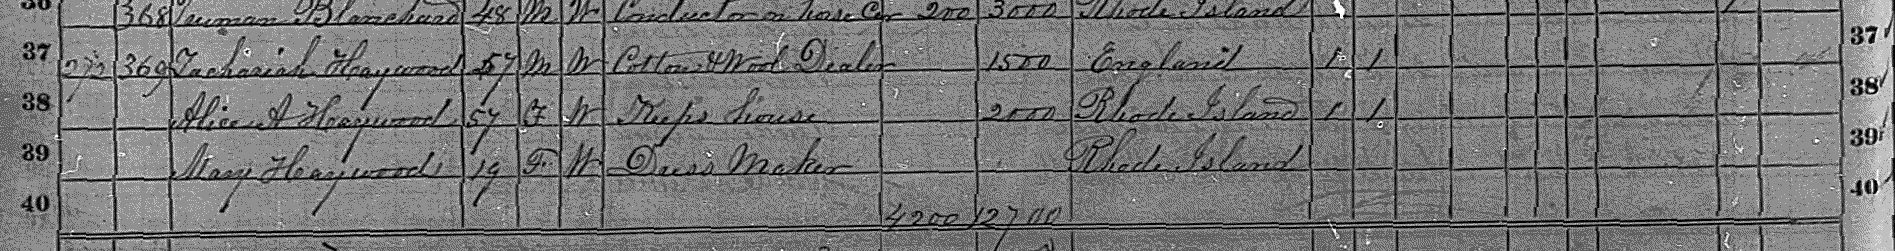 36 368 Truman Blanchard 48 M W Conductor on horse Car 200 3000 Rhode Island
37 273 369 Zachariah Haywood 57 M W Cotton & Wool Dealer 1500 England 1 1 37
38 Alice A Haywood 57 F W Keeps house 2000 Rhode Island 1 1 38
39 Mary Haywood 19 F W Dress Maker Rhode Island 39
40 4200 12700 40